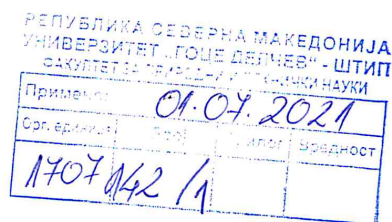 РЕПУБЛИКА СЕВЕРНА МАКЕДОНИЈА
УНИВЕРЗИТЕТ „ГОЦЕ ДЕЛЧЕВ“ - ШТИП
ФАКУЛТЕТ ЗА НАУКИ
01.07.2021
Орг. единица Број Прилог Вредност
1707 142 /1